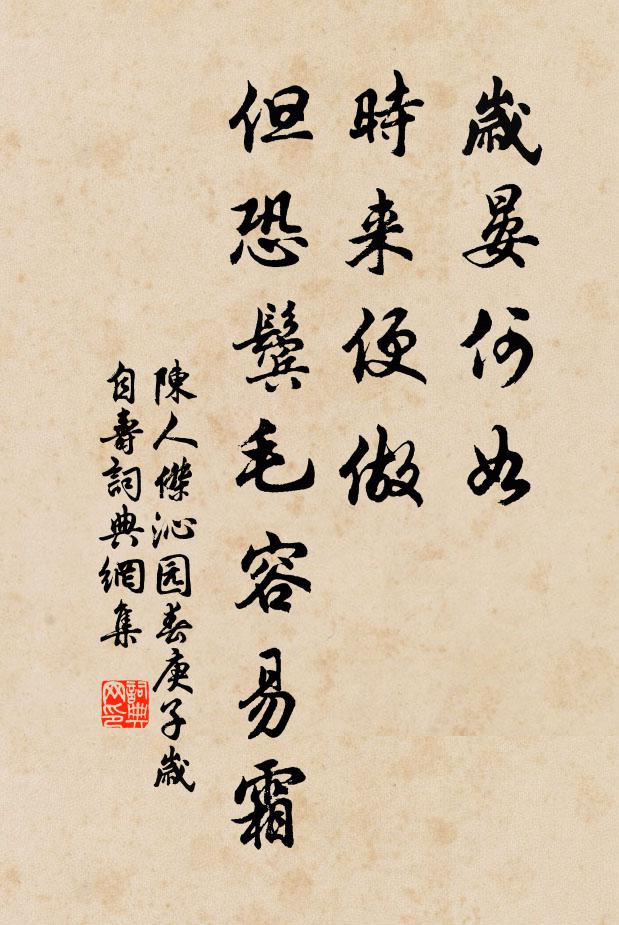 歲晏何如
時来便做
但恐鬓毛容易霜
陳人傑沁园春庚子歲
自壽詞典網集
詞典
网印